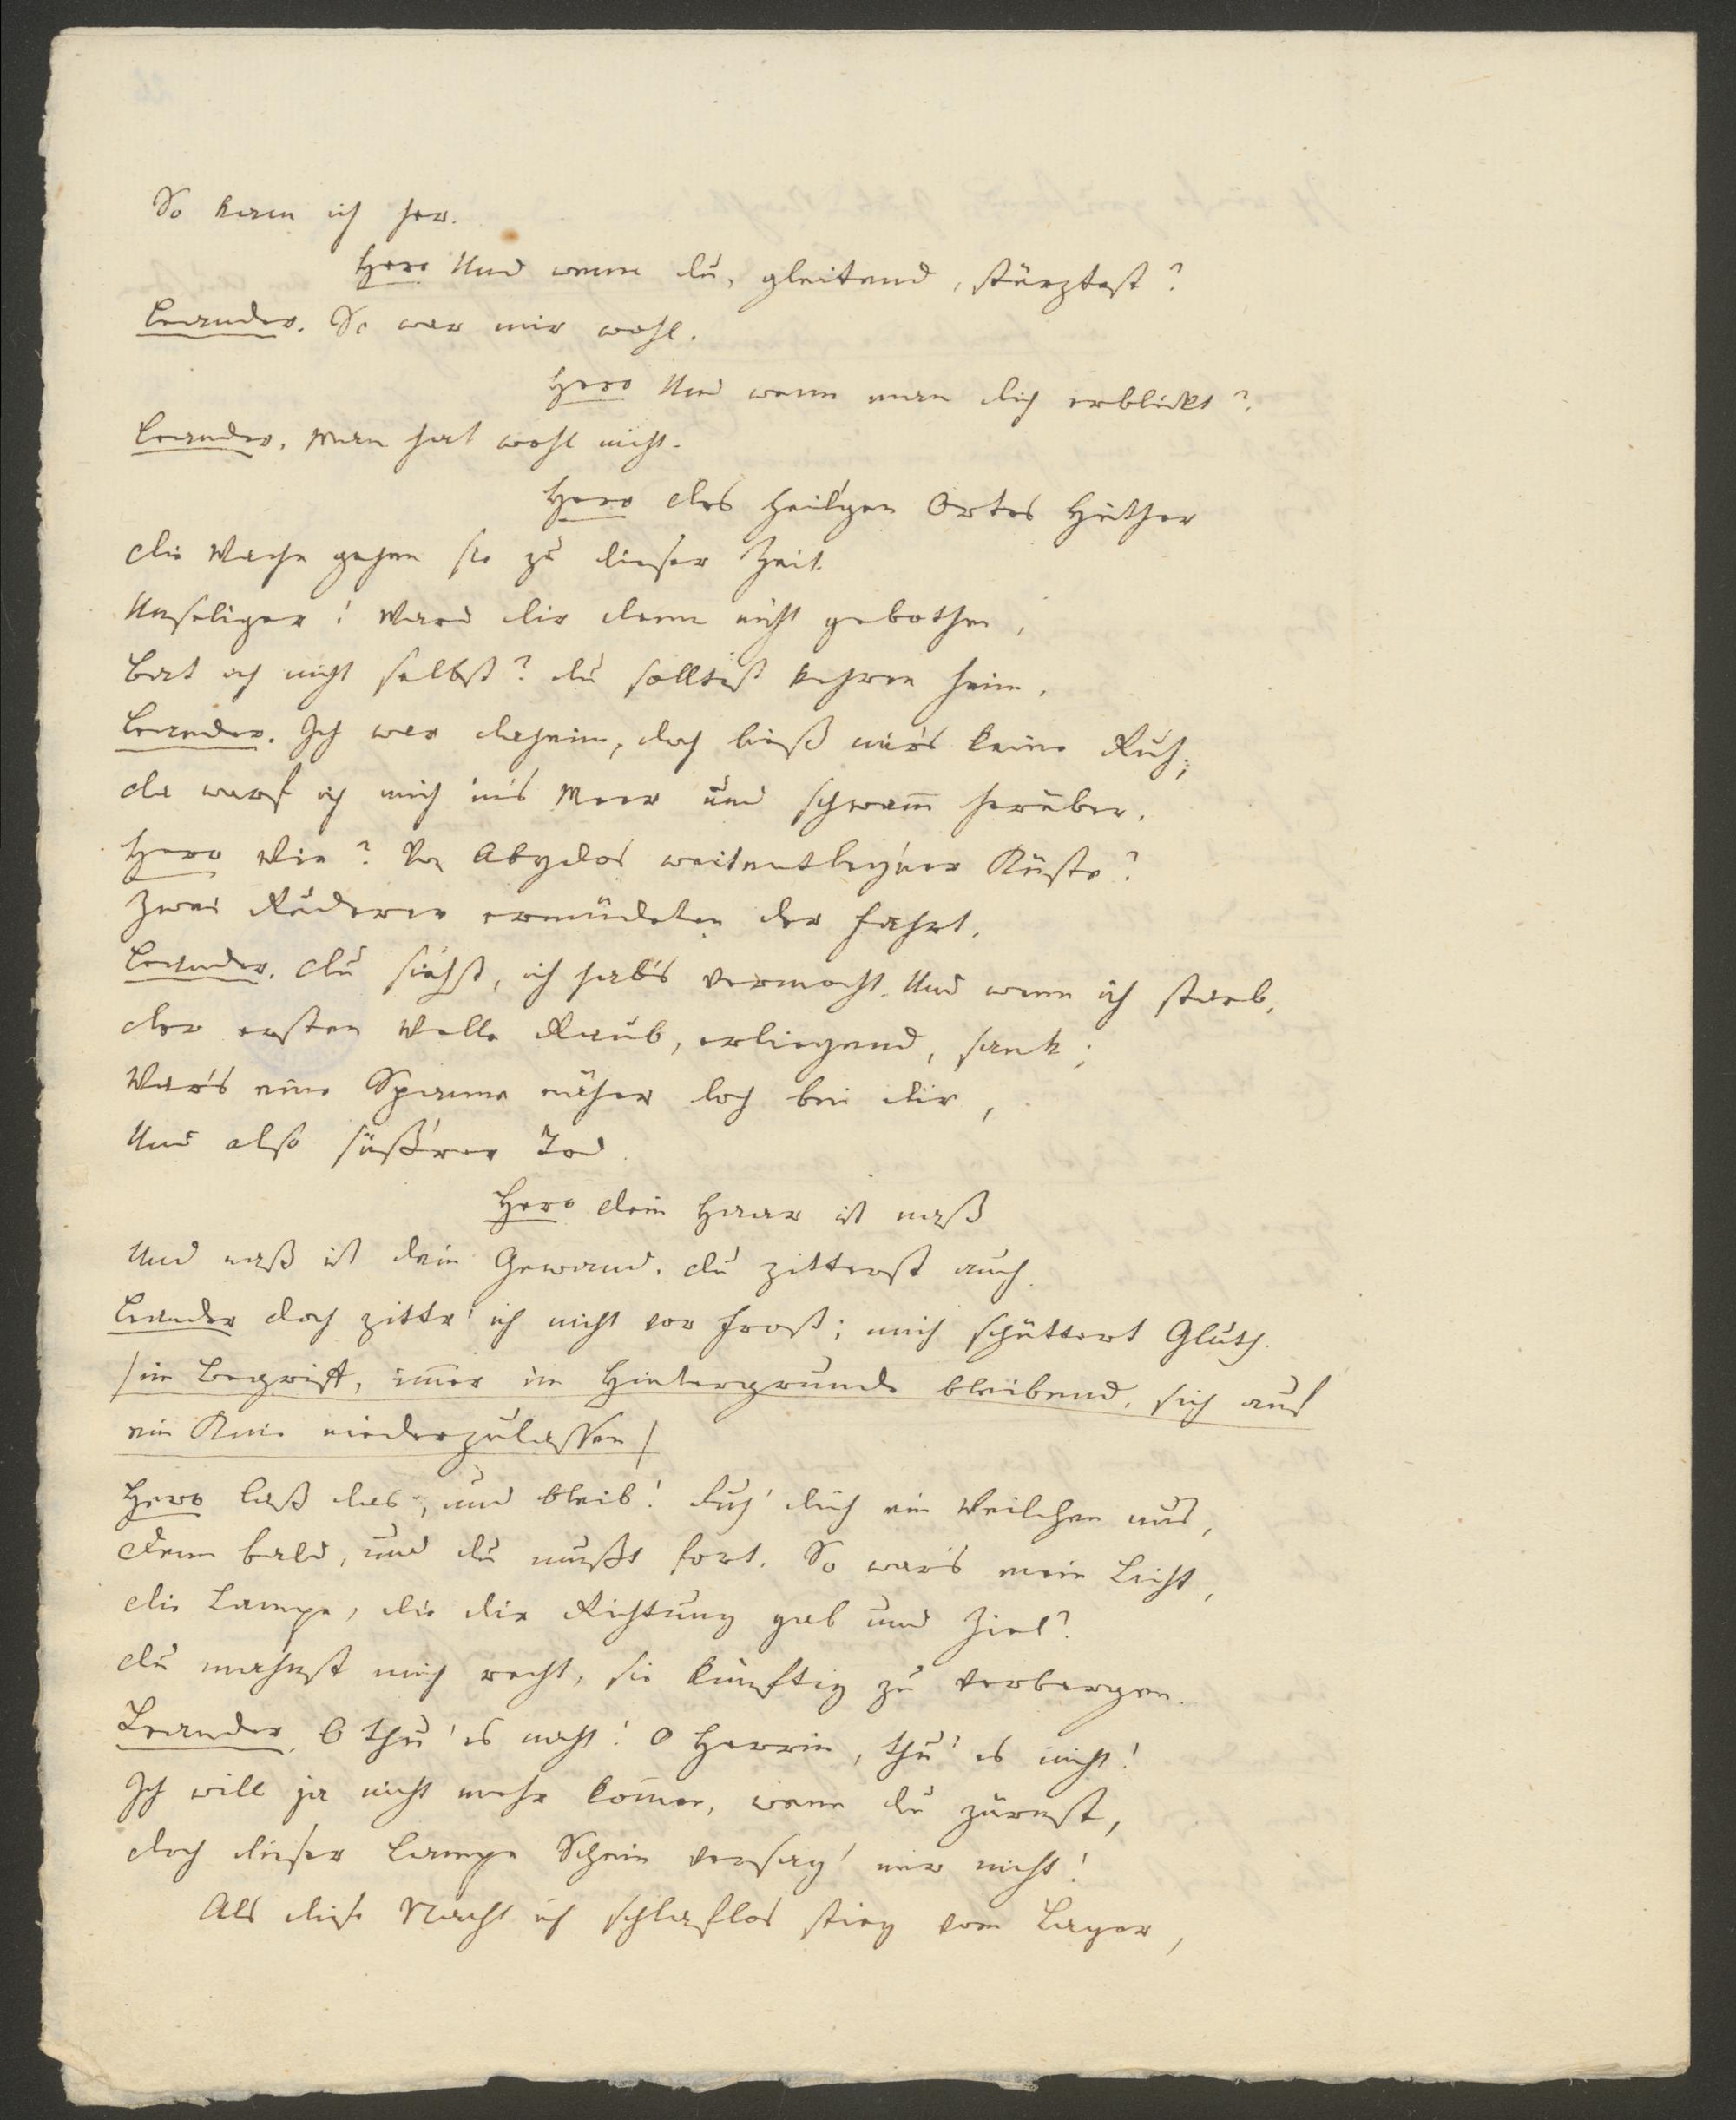 So kam ich her.
Hero Und wenn du, gleitend, stürztest?
Leander. So war mir wohl.
Hero Und wenn man dich erblickt?
Leander. Man hat wohl nicht.
Hero des heil'gen Ortes Hüther
die Wache gehen sie zu dieser Zeit.
Unseliger! Ward dir denn nicht gebothen,
Bat ich nicht selbst? du solltest kehren heim.
Leander. Ich war daheim, doch ließ mir's keine Ruh;
da warf ich mich in's Meer und schwam̅ herüber.
Hero Wie? Von Abydos weitentleg'ner Küste?
Zwei Rüderer ermüdeten der Fahrt.
Leander. du siehst, ich hab's vermocht. Und wenn ich starb,
der ersten Welle Raub, erliegend, sank;
War's eine Spanne näher doch bei dir,
Und also süß'rer Tod.
Hero dein Haar ist naß
Und naß ist dein Gewand. du zitterst auch.
Leander doch zittr' ich nicht vor Frost; mich schüttert Gluth.
/im Begriff, im̅er im Hintergrunde bleibend, sich auf
ein Knie niederzulassen/
Hero laß das, und bleib! Ruh' dich ein Weilchen aus,
denn bald, und du mußt fort. So war's mein Licht,
die Lampe, die dir Richtung gab und Ziel?
du mahnst mich recht, sie künftig zu verbergen.
Leander. O thu' es nicht! O Herrin, thu' es nicht!
Ich will ja nicht mehr kom̅en, wenn du zürnst,
doch dieser Lampe Schein versag' mir nicht!
Als diese Nacht ich schlaflos stieg vom Lager,